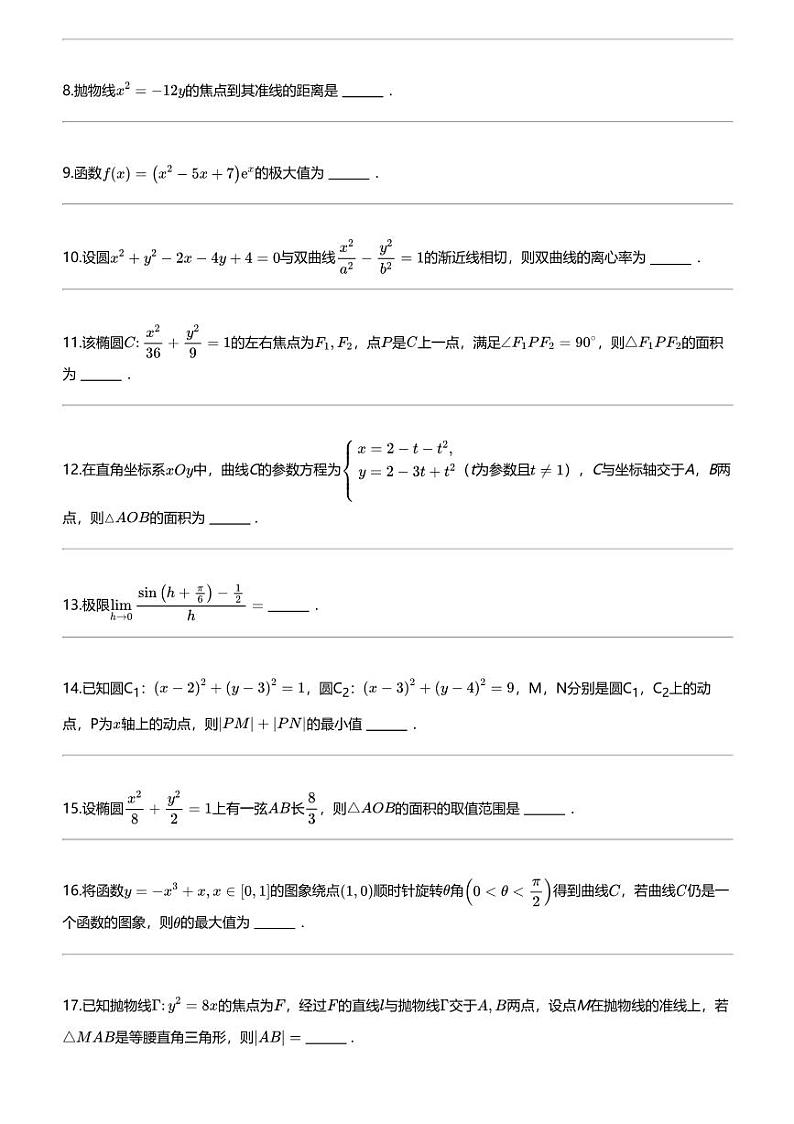 8.抛物线x² = −12y的焦点到其准线的距离是 ______ .
9.函数f(x) = (x² − 5x + 7)eˣ的极大值为 ______ .
10.设圆x² + y² − 2x − 4y + 4 = 0与双曲线x²/a² − y²/b² = 1的渐近线相切，则双曲线的离心率为 ______ .
11.该椭圆C: x²/36 + y²/9 = 1的左右焦点为F₁, F₂，点P是C上一点，满足∠F₁PF₂ = 90°，则△F₁PF₂的面积
为 ______ .
12.在直角坐标系xOy中，曲线C的参数方程为{x = 2 − t − t², y = 2 − 3t + t²（t为参数且t ≠ 1），C与坐标轴交于A，B两
点，则△AOB的面积为 ______ .
13.极限lim h→0 (sin(h + π/6) − 1/2)/h = ______ .
14.已知圆C₁：(x − 2)² + (y − 3)² = 1，圆C₂：(x − 3)² + (y − 4)² = 9，M，N分别是圆C₁，C₂上的动
点，P为x轴上的动点，则|PM| + |PN|的最小值 ______ .
15.设椭圆x²/8 + y²/2 = 1上有一弦AB长8/3，则△AOB的面积的取值范围是 ______ .
16.将函数y = −x³ + x, x ∈ [0, 1]的图象绕点(1, 0)顺时针旋转θ角(0 < θ < π/2)得到曲线C，若曲线C仍是一
个函数的图象，则θ的最大值为 ______ .
17.已知抛物线Γ: y² = 8x的焦点为F，经过F的直线l与抛物线Γ交于A, B两点，设点M在抛物线的准线上，若
△MAB是等腰直角三角形，则|AB| = ______ .